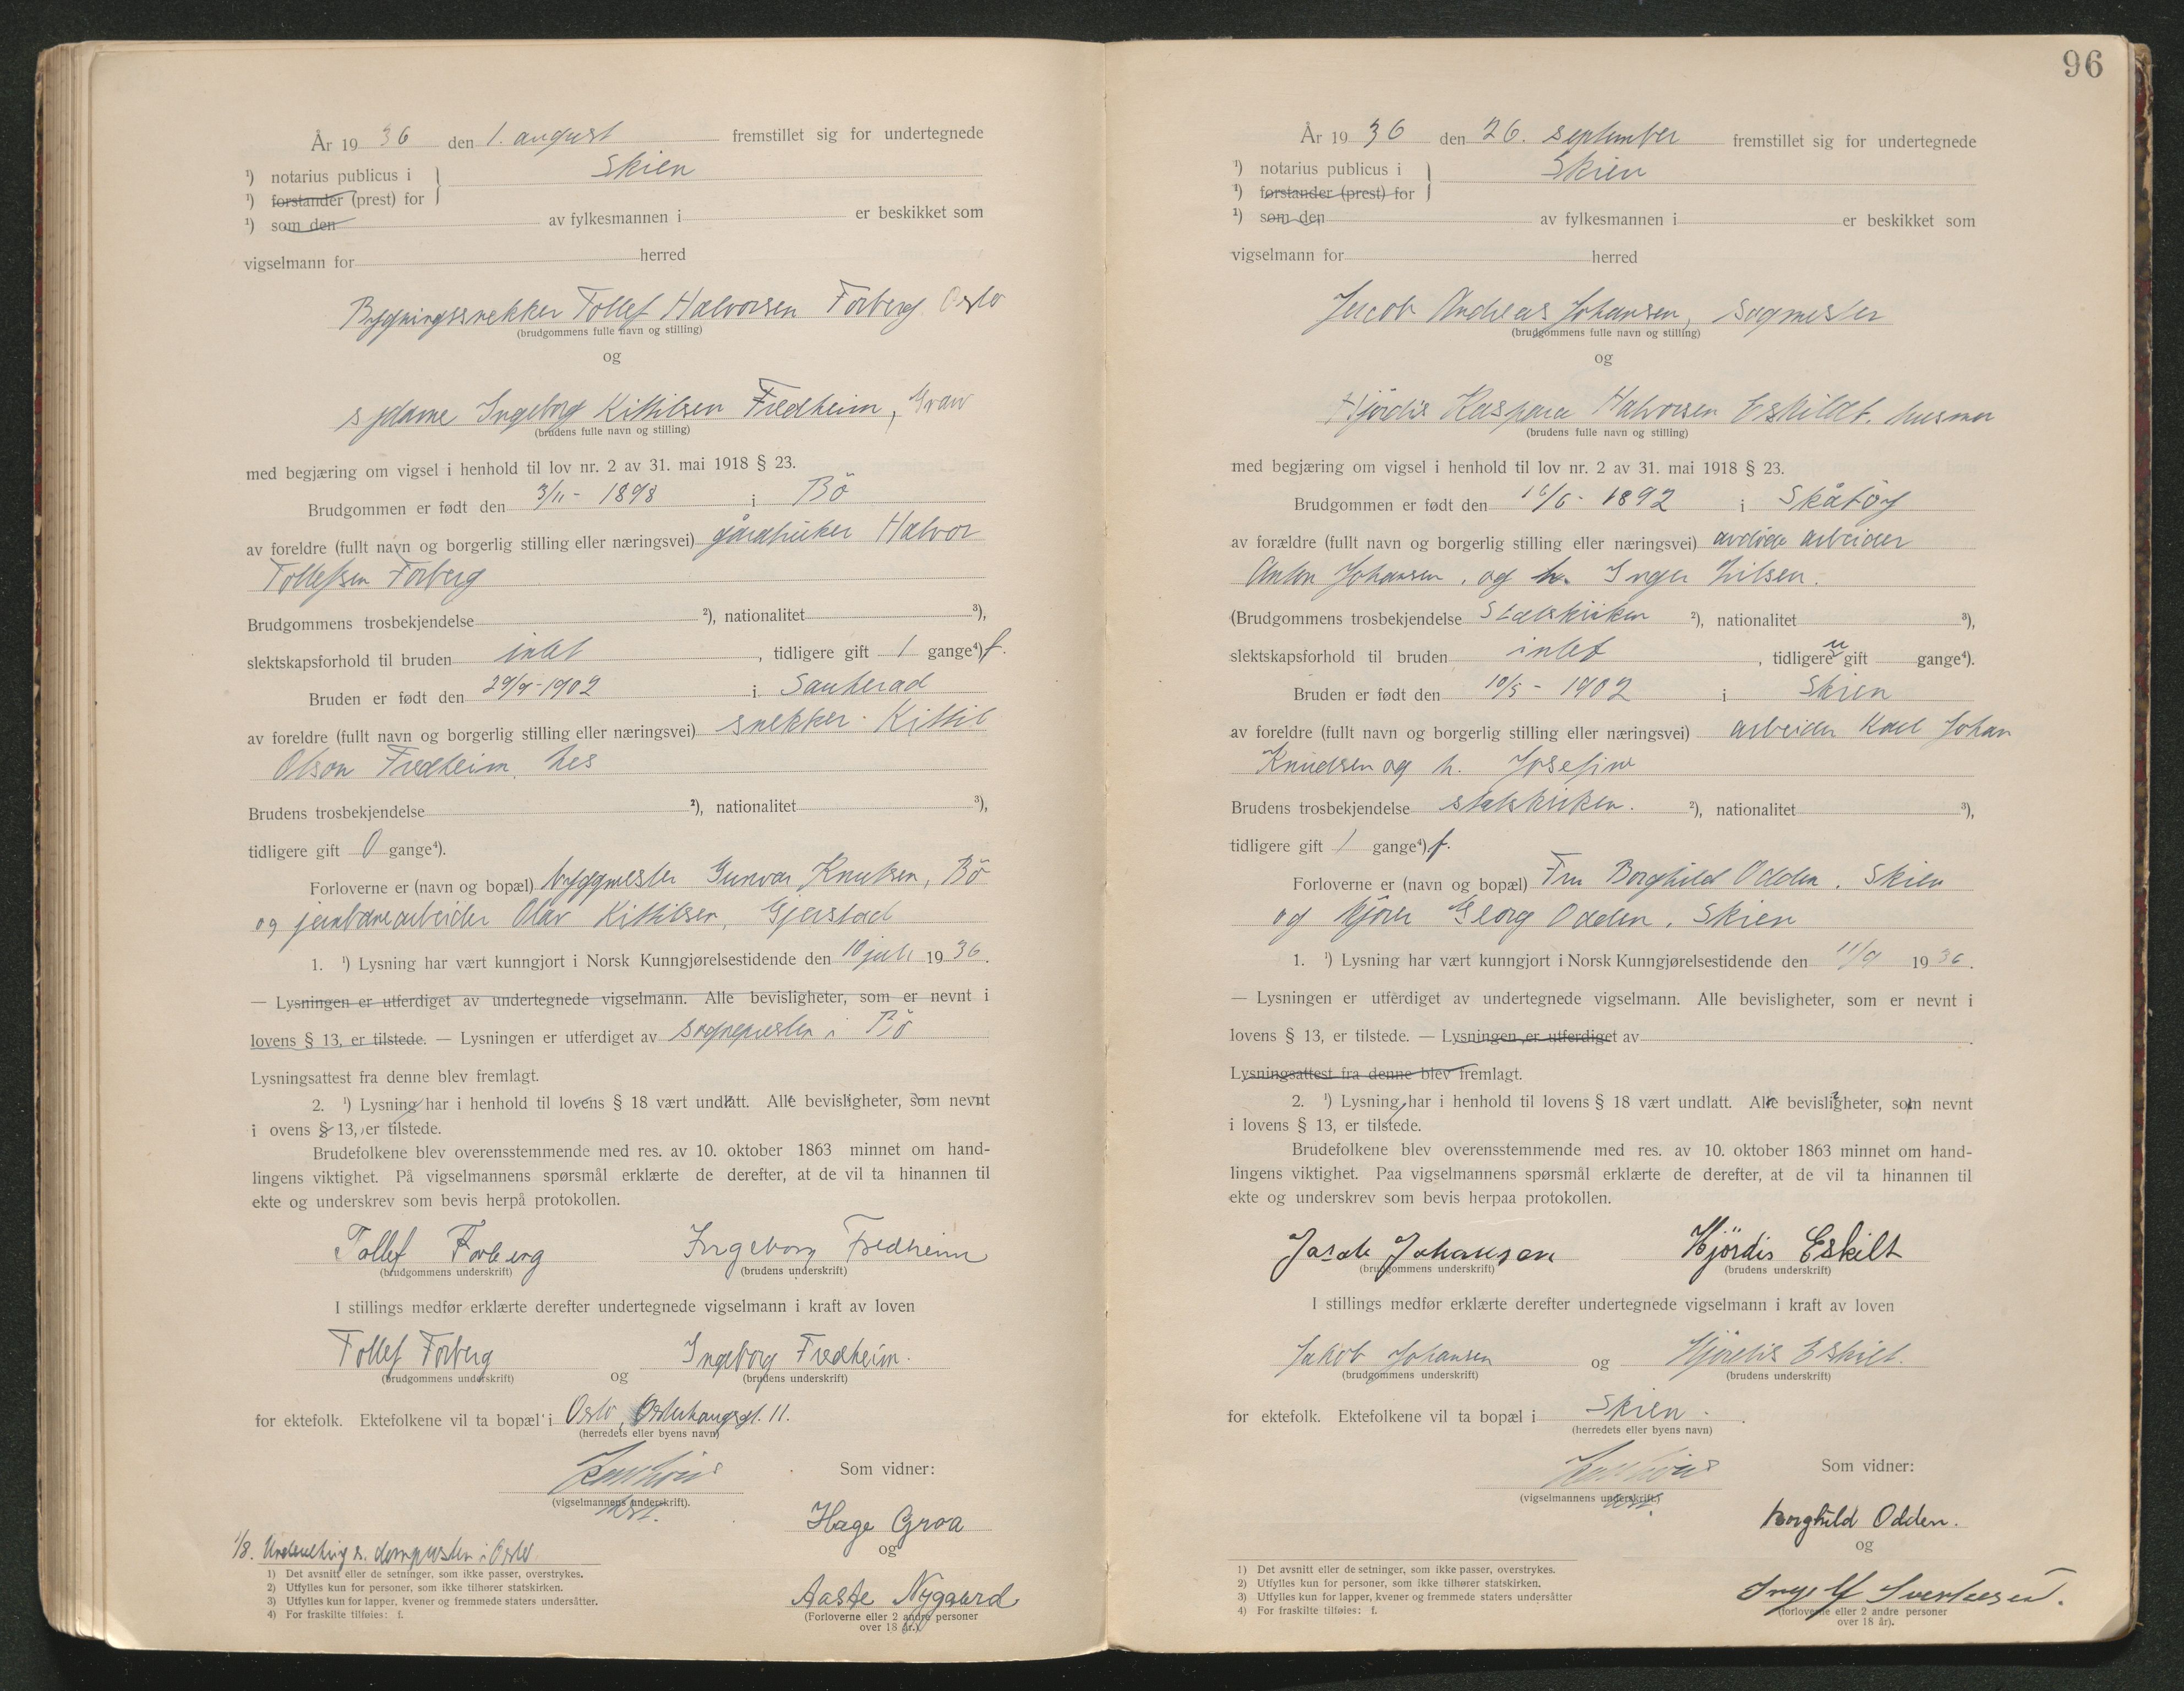 År 19 36 den 1. august fremstillet sig for undertegnede
¹) notarius publicus i Skien
¹) forstander (prest) for
¹) som den av fylkesmannen i er beskikket som
vigselmann for herred
Bygningssnekker Tollef Halvorsen Forberg Oslo
(brudgommens fulle navn og stilling)
og
sydame Ingeborg Kittilsen Fredheim,
(brudens fulle navn og stilling)
med begjæring om vigsel i henhold til lov nr. 2 av 31. mai 1918 § 23.
Brudgommen er født den 3/11 - 1898 i Bö
av foreldre (fullt navn og borgerlig stilling eller næringsvei) gårdbruker Halvor
Tollefsen Forberg
Brudgommens trosbekjendelse ²), nationalitet ³),
slektskapsforhold til bruden intet, tidligere gift 1 gange⁴) f.
Bruden er født den 29/9-1902 i Sauherad
av foreldre (fullt navn og borgerlig stilling eller næringsvei) snekker Kittil
Olson Fredheim,
Brudens trosbekjendelse ²), nationalitet ³),
tidligere gift 0 gange⁴).
Forloverne er (navn og bopæl) byggmester Gunvar Knutsen, Bö
og jernbanearbeider Olav Kittilsen, Gjerstad
1. ¹) Lysning har vært kunngjort i Norsk Kunngjørelsestidende den 10 juli 1936.
— Lysningen er utferdiget av undertegnede vigselmann. Alle bevisligheter, som er nevnt i
lovens § 13, er tilstede. — Lysningen er utferdiget av sognepresten i Bö
Lysningsattest fra denne blev fremlagt.
2. ¹) Lysning har i henhold til lovens § 18 vært undlatt. Alle bevisligheter, som nevnt
i ovens § 13, er tilstede.
Brudefolkene blev overensstemmende med res. av 10. oktober 1863 minnet om hand-
lingens viktighet. På vigselmannens spørsmål erklærte de derefter, at de vil ta hinannen til
ekte og underskrev som bevis herpå protokollen.
Tollef Forberg Ingeborg Fredheim
(brudgommens underskrift) (brudens underskrift)
I stillings medfør erklærte derefter undertegnede vigselmann i kraft av loven
Tollef Forberg Ingeborg Fredheim.
(brudgommens underskrift) og (brudens underskrift)
for ektefolk. Ektefolkene vil ta bopæl i Oslo, Osterhausgt. 11.
(herredets eller byens navn)
Som vidner:
(vigselmannens underskrift).
Hage Groa
og
1/8. Underretning s. domprosten i Oslo
Aaste Nygaard
(Forloverne eller 2 andre personer
over 18 år.)
1) Det avsnitt eller de setninger, som ikke passer, overstrykes.
2) Utfylles kun for personer, som ikke tilhører statskirken.
3) Utfylles kun for lapper, kvener og fremmede staters undersåtter.
4) For fraskilte tilføies: f.
96
År 19 36 den 26. september fremstillet sig for undertegnede
¹) notarius publicus i Skien
¹) forstander (prest) for
¹) som den av fylkesmannen i er beskikket som
vigselmann for herred
Jacob Andreas Johansen, sagmester
(brudgommens fulle navn og stilling)
og
Hjördis Kaspara Halvorsen Eskildt. husmor
(brudens fulle navn og stilling)
med begjæring om vigsel i henhold til lov nr. 2 av 31. mai 1918 § 23.
Brudgommen er født den 16/6 - 1892 i Skåtöy
av forældre (fullt navn og borgerlig stilling eller næringsvei) avdöde arbeider
Anton Johansen, og h. Inger Nilsen.
(Brudgommens trosbekjendelse Statskirken ²), nationalitet ³),
slektskapsforhold til bruden intet, tidligere u gift gange⁴).
Bruden er født den 10/5 - 1902 i Skien
av foreldre (fullt navn og borgerlig stilling eller næringsvei) arbeider Karl Johan
Knudsen og h. Josefine
Brudens trosbekjendelse statskirken. ²), nationalitet ³),
tidligere gift 1 gange⁴) f.
Forloverne er (navn og bopæl) Fru Borghild Odden. Skien
og kjörer Georg Odden. Skien
1. ¹) Lysning har vært kunngjort i Norsk Kunngjørelsestidende den 11/9 1936.
— Lysningen er utferdiget av undertegnede vigselmann. Alle bevisligheter, som er nevnt i
lovens § 13, er tilstede. — Lysningen er utferdiget av
Lysningsattest fra denne blev fremlagt.
2. ¹) Lysning har i henhold til lovens § 18 vært undlatt. Alle bevisligheter, som nevnt
i lovens § 13, er tilstede.
Brudefolkene blev overensstemmende med res. av 10. oktober 1863 minnet om hand-
lingens viktighet. Paa vigselmannens spørsmål erklærte de derefter, at de vil ta hinannen til
ekte og underskrev som bevis herpaa protokollen.
Jacob Johansen Hjördis Eskilt
(brudgommens underskrift) (brudens underskrift)
I stillings medfør erklærte derefter undertegnede vigselmann i kraft av loven
Jakob Johansen og Hjördis Eskilt.
(brudgommens underskrift) (brudens underskrift)
for ektefolk. Ektefolkene vil ta bopæl i Skien.
(herredets eller byens navn)
Som vidner:
(vigselmannens underskrift)
Borghild Odden.
og
(forloverne eller 2 andre personer
over 18 år).
1) Det avsnitt eller de setninger, som ikke passer, overstrykes.
2) Utfylles kun for personer, som ikke tilhører statskirken.
3) Utfylles kun for lapper, kvener og fremmede staters undersåtter
4) For fraskilte tilføies: f.